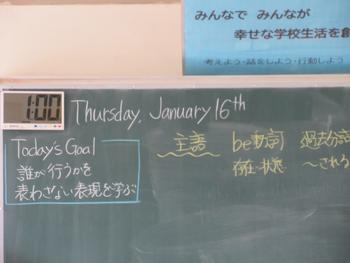 みんなで みんなが
幸せな学校生活を創
考えよう・話をしよう・行動しよう
1:00
Thursday, January 16th
Today's Goal
誰が行うかを
表わさない表現を学ぶ
主語 be動詞 過去分詞
存在・状態 〜される